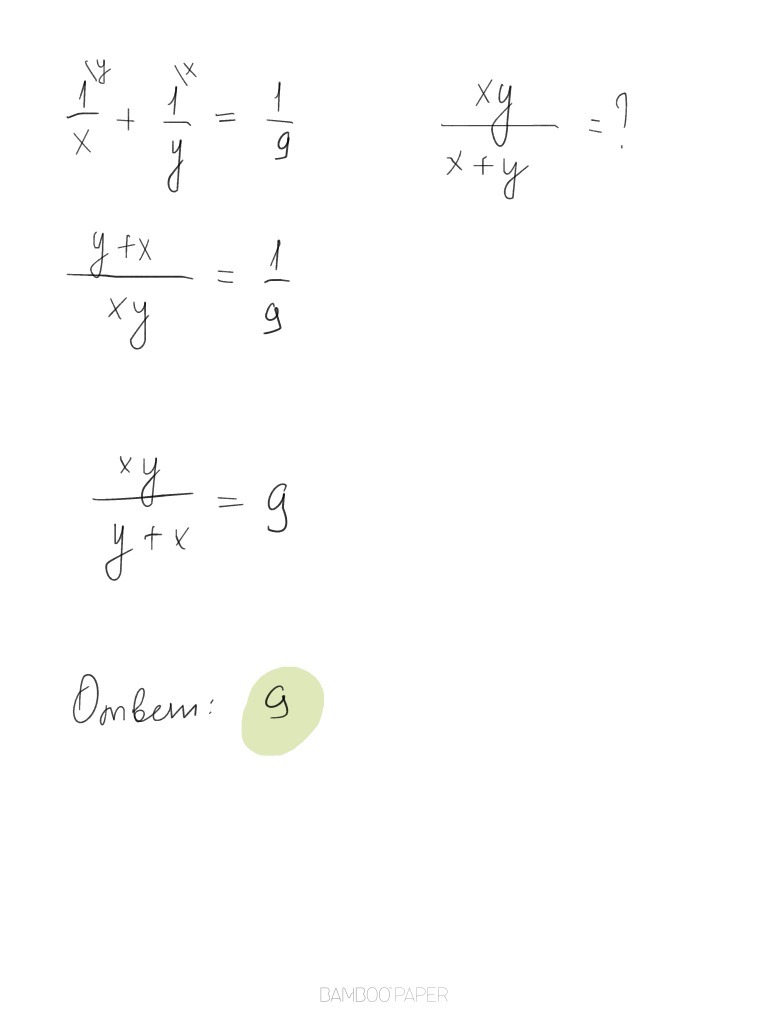 1\y/x + 1\x/y = 1/9
xy/(x+y) = ?
(y+x)/(xy) = 1/9
xy/(y+x) = 9
Ответ: 9
BAMBOO PAPER